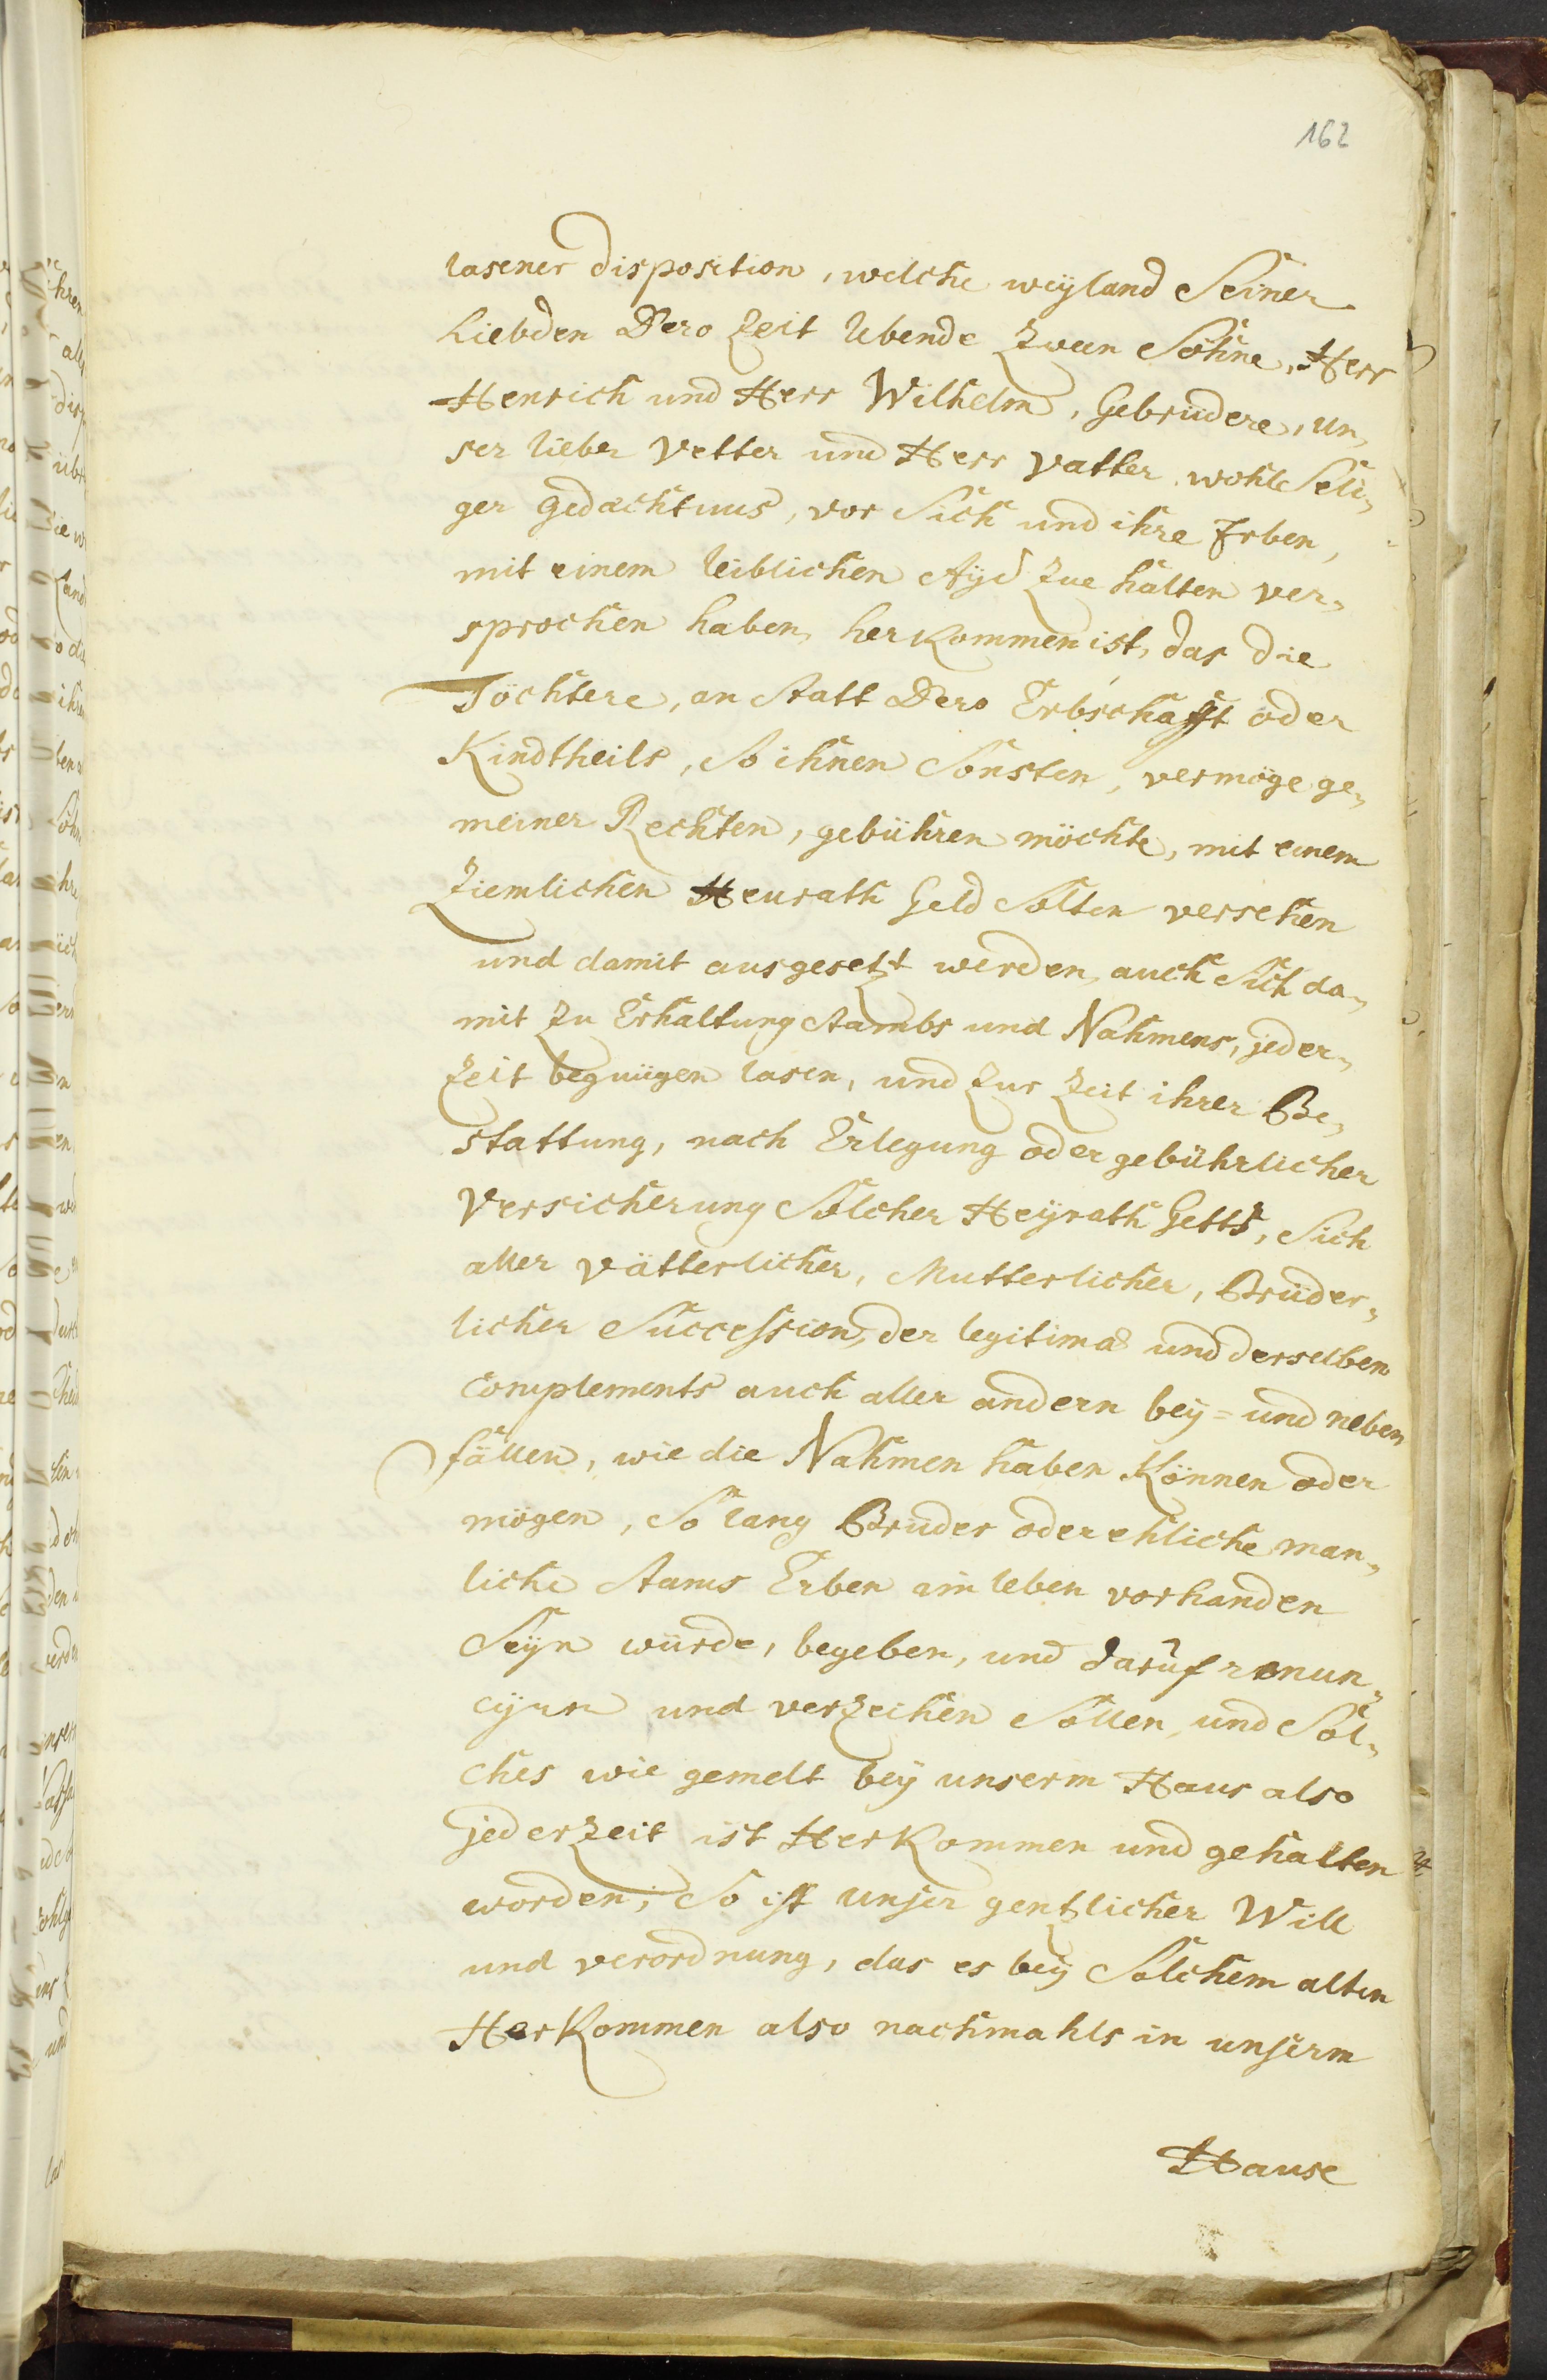 162
lasener disposition, welche weyland Seiner
Liebden Dero Zeit lebende Zween Söhne, Herr
Henrich und Herr Wilhelm, Gebrüdere, un„
ser lieber Vetter und Herr Vatter wohl Seli„
ger gedächtnus, vor Sich und ihre Erben,
mit einem leiblichen Aÿd Zue halten ver„
sprochen haben, her Kommen ist, das die
Töchtere, an Statt Dero Erbschafft oder
Kindtheils, So ihnen Sonsten, vermöge ge„
meiner Rechten, gebühren möchte, mit einem
Ziemlichen Heurath Geld Solten versehen
und damit ausgesetzt werden, auch Sich da„
mit Zu Erhaltung Stambs und Nahmens, jeder„
Zeit begnügen lasen, und Zur Zeit ihrer Be„
stattung, nach Erlegung oder gebührlicher
Versicherung Solcher Heÿrath Gelts, Sich
aller Vätterlicher, Mutterlicher, Brüder„
licher Succession, der legitima und derselben
Complements auch aller andern beÿ= und neben
fällen, wie die Nahmen haben Können oder
mögen, So lang Brüder oder ehliche man„
liche Stams Erben im leben vorhanden
Seÿn würde, begeben, und daruf renun„
cÿrn und verzeihen Sollen, und Sol„
ches wie gemelt beÿ unserm Haus also
jederzeit ist Her Kommen und gehalten
worden; So ist unser gentzlicher Will
und verordnung, das es beÿ Solchem alten
Her Kommen also nachmahls in unserm
Hause